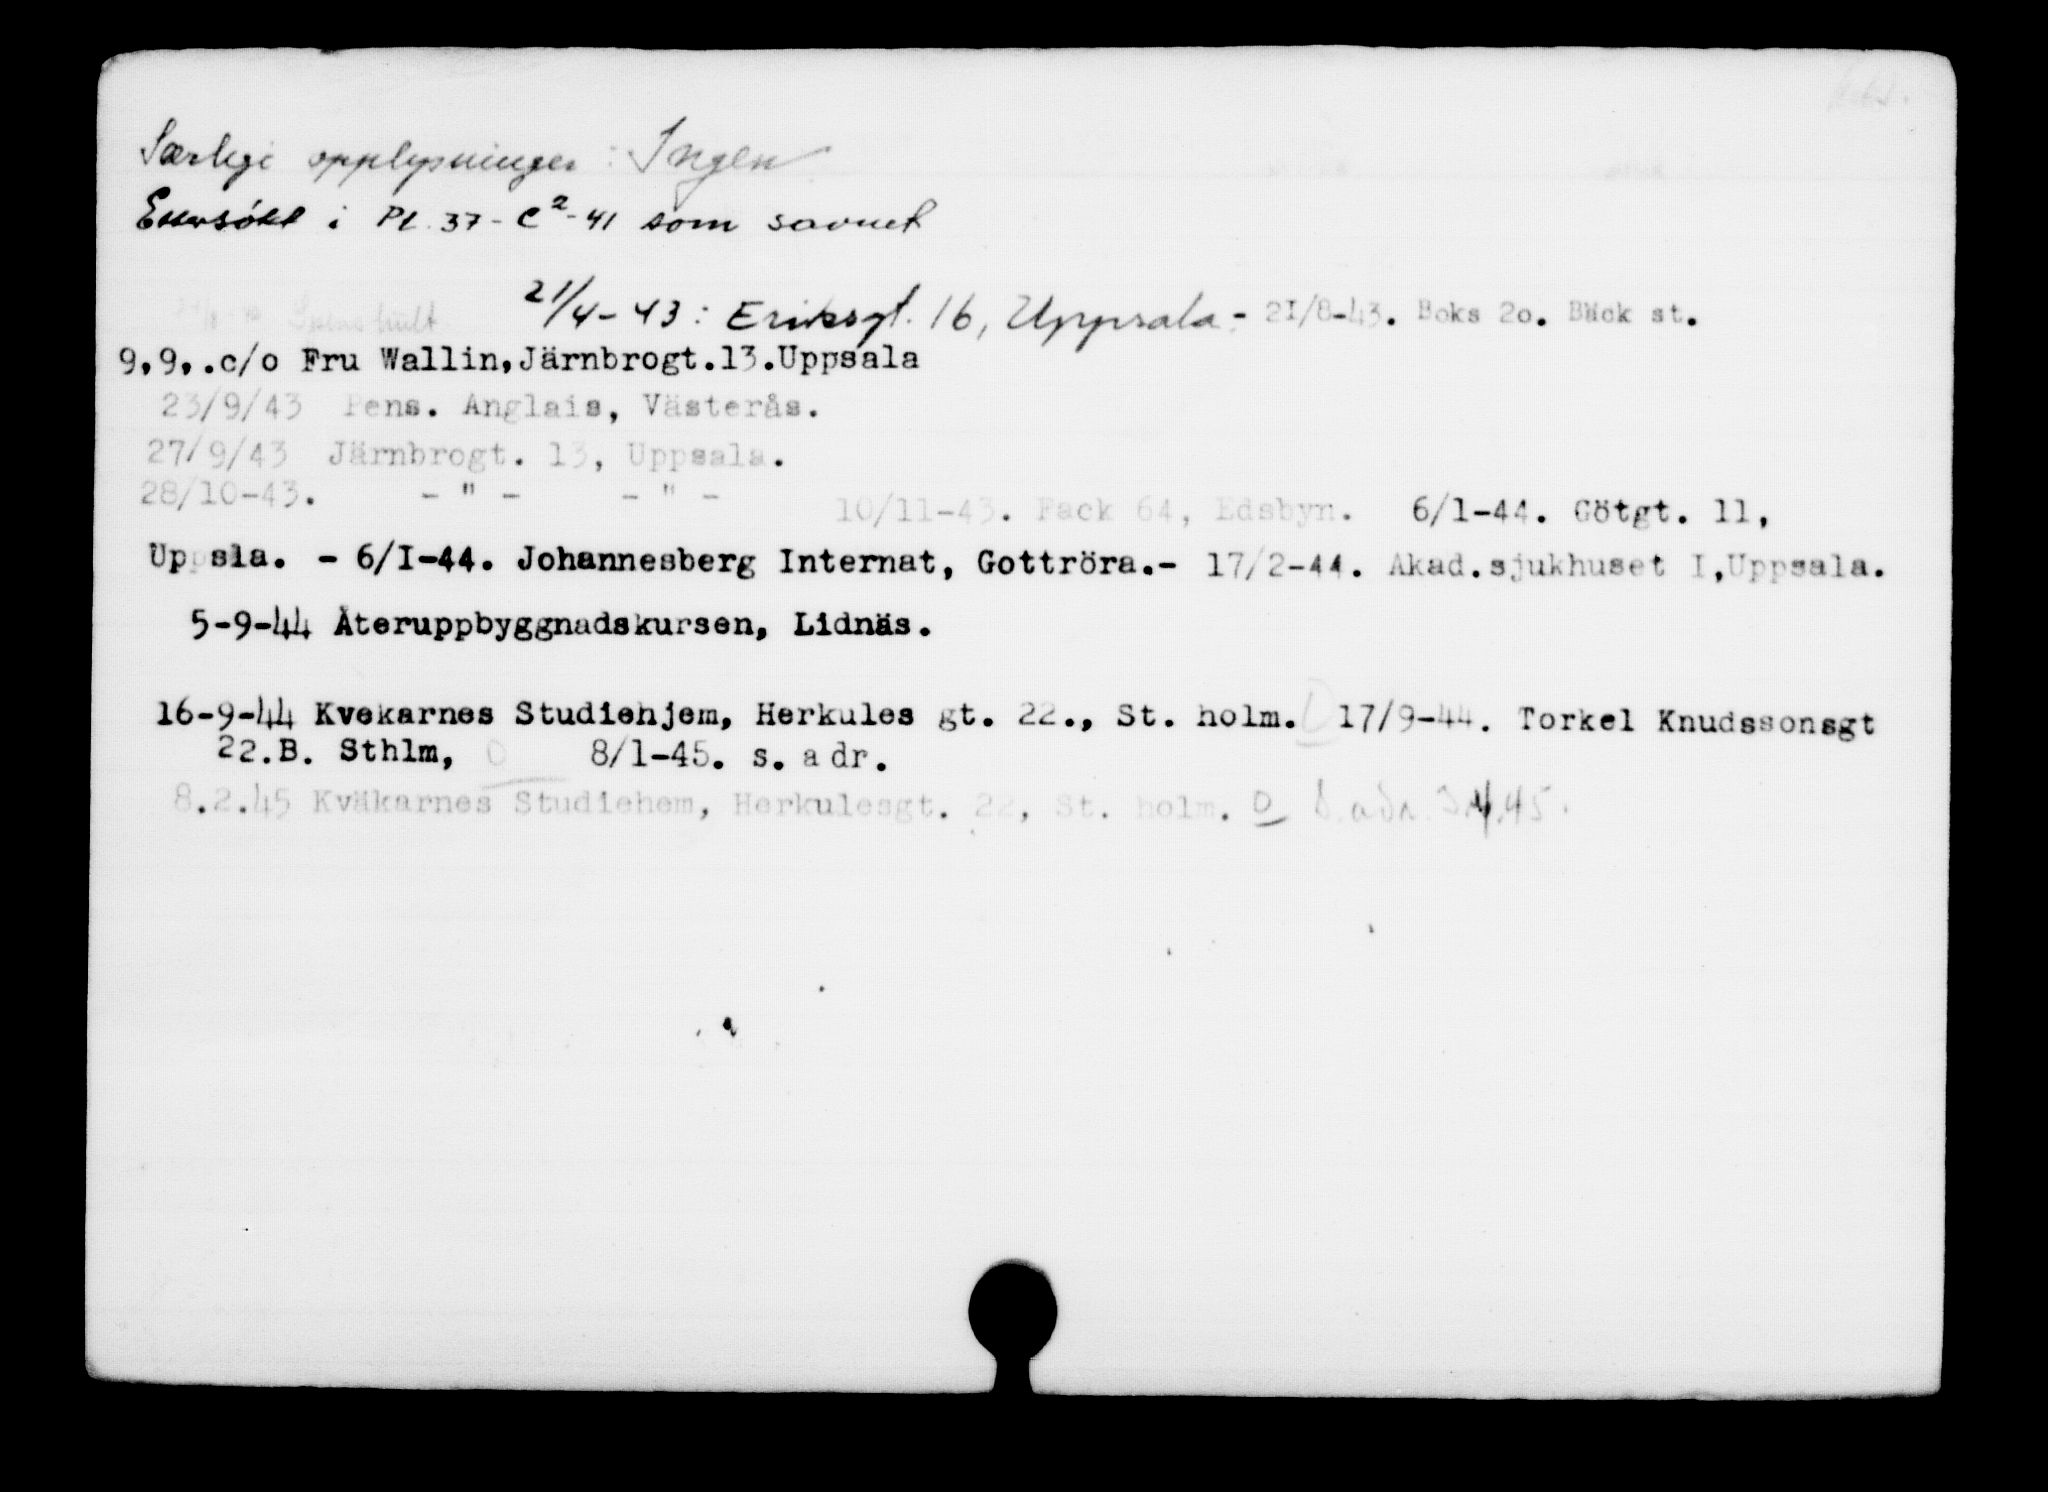 Særlige opplysninger: Ingen
Ettersökt i Pt. 37 - C²- 41 som savnet
21/4-43: Eriksgt. 16, Uppsala.- 21/8-43. Boks 2o. Bäck st.
9.9..c/o Fru Wallin,Järnbrogt.13.Uppsala
23/9/43 Pens. Anglais, Västerås.
27/9/43 Järnbrogt. 13, Uppsala.
28/10-43. - " - - " - 10/11-43. Fack 64, Edsbyn. 6/1-44. Götgt. 11,
Uppsla. - 6/I-44. Johannesberg Internat, Gottröra.- 17/2-44. Akad.sjukhuset I,Uppsala.
5-9-44 Återuppbyggnadskursen, Lidnäs.
16-9-44 Kvekarnes Studiehjem, Herkules gt. 22., St. holm. O 17/9-44. Torkel Knudssonsgt
22.B. Sthlm, O 8/1-45. s. adr.
8.2.45 Kväkarnes Studiehem, Herkulesgt. 22, St. holm. O S. adr. 3.4.45.